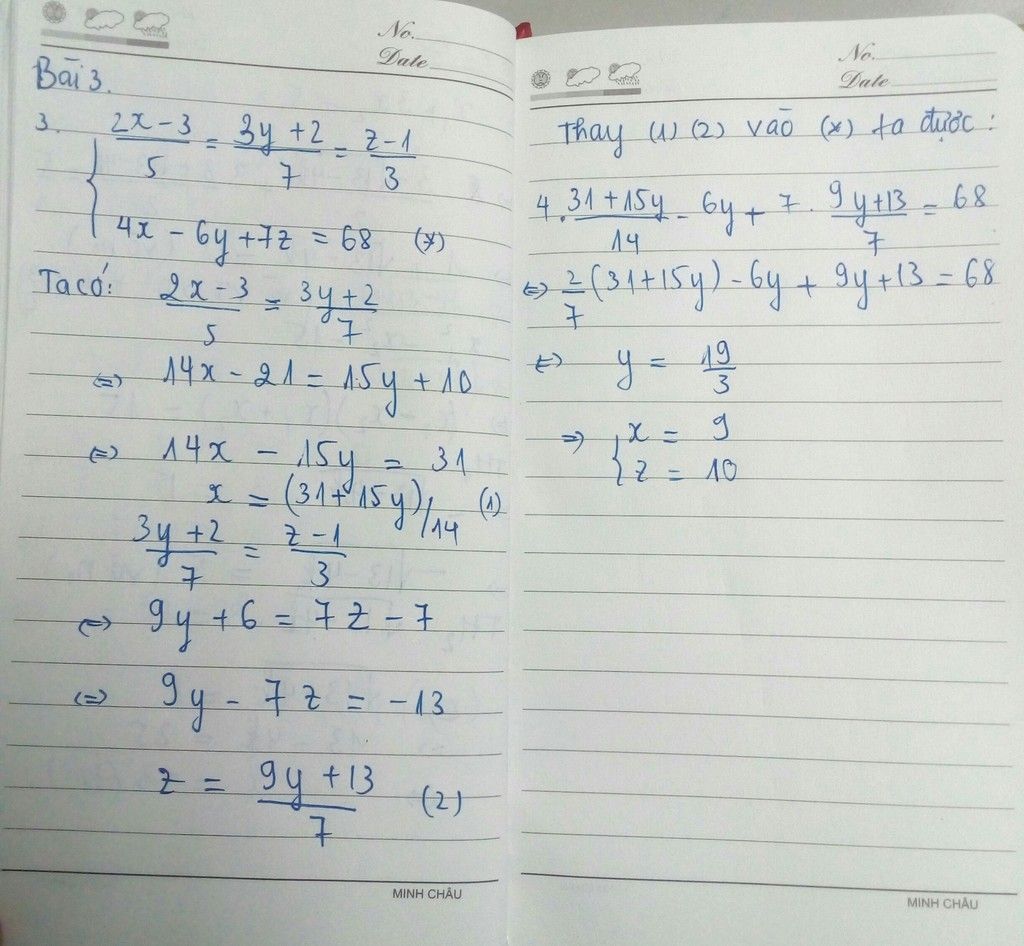 No.
Date
Bài 3.
3. { (2x - 3)/5 = (3y + 2)/7 = (z - 1)/3
4x - 6y + 7z = 68 (*)
Ta có: (2x - 3)/5 = (3y + 2)/7
<=> 14x - 21 = 15y + 10
<=> 14x - 15y = 31
x = (31 + 15y)/14 (1)
(3y + 2)/7 = (z - 1)/3
<=> 9y + 6 = 7z - 7
<=> 9y - 7z = -13
z = (9y + 13)/7 (2)
MINH CHÂU
No.
Date
Thay (1) (2) vào (*) ta được:
4 . (31 + 15y)/14 - 6y + 7 . (9y + 13)/7 = 68
<=> 2/7 (31 + 15y) - 6y + 9y + 13 = 68
<=> y = 19/3
=> { x = 9
z = 10
MINH CHÂU